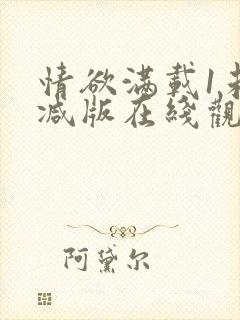 情欲满载1未
减版在线觀
阿黛尔